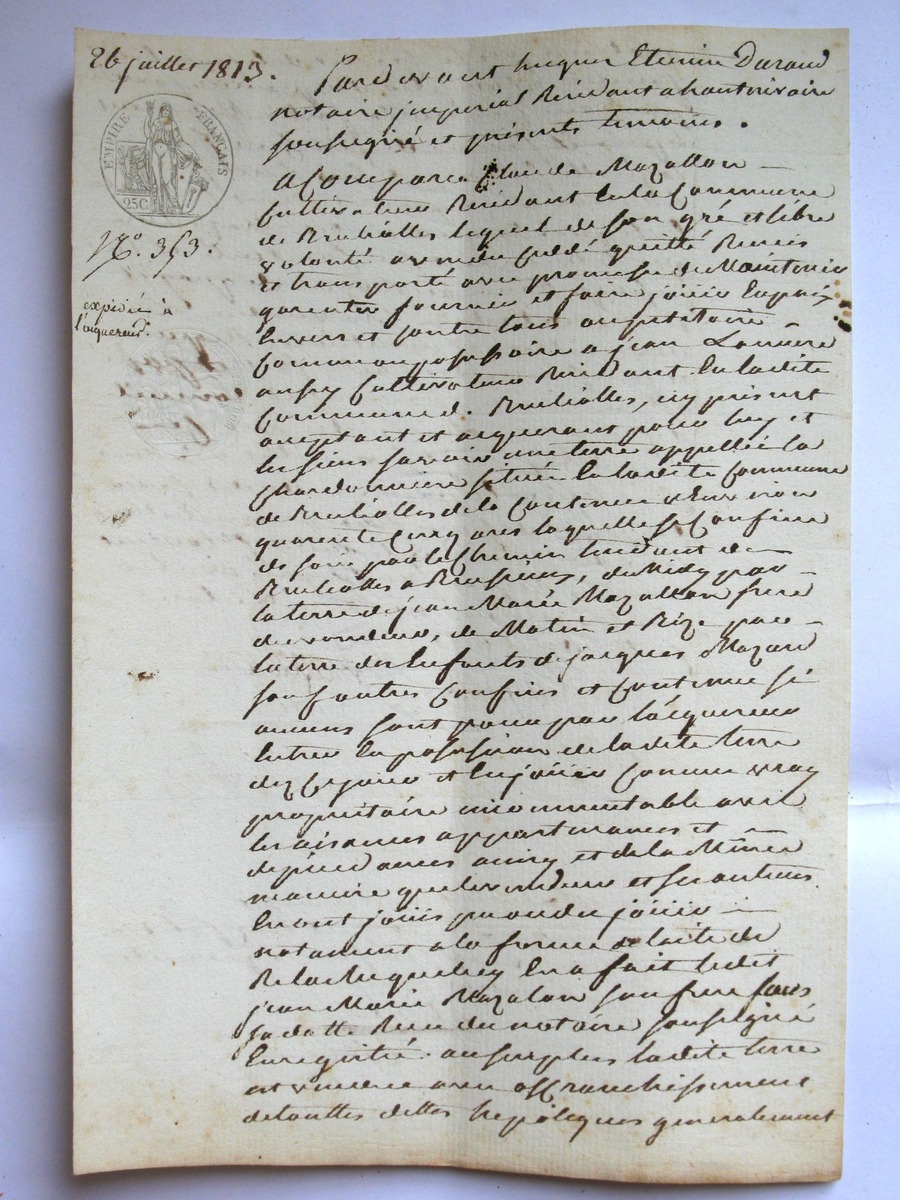 26 juillet 1813.
EMPIRE FRANÇAIS
25C
N.o 353.
expédié à
l'aquereur.
Pardevant hugues Etienne Durand
notaire imperial Résidant a hauterivoire
soussigné et présents temoins.
a Comparu Claude Mazallon
Cultivateur Résidant en la Commune
de Brullolles lequel de son gré et libre
volonté a vendu cedé quitté Remis
et transporté avec promesse de Maintenir
garentir fournir et faire joüir Enpaix
Envers et contre tous au petitoire
Comme au possessoire a jean
aussy Cultivateur Résidant En ladite
Commune d. Brullolles, icy présent
aceptant et aquerant pour luy et
les siens savoir une terre appellée la
chardonniere située En ladite Commune
de Brullolles de la Contenue d'Environ
quarente Cinq ares laquelle se Confine
de soir par le Chemin tendant de
Brullolles a Brussieux, de Midy par
la terre de jean Marie Mazallon frere
du vendeur, de Matin et Bize par
la terre des Enfants de jacques Mazard
sauf autres Confins et Contenue si
aucuns sont pour par l'acquereur
Entrer En possession de ladite terre
dez Ce jour et En joüir Comme vray
propriétaire incommutable avec
les aisances appartenances et
dépendances ainsy et de la Même
maniere que le vendeur et ses auteurs
En ont joüis pu ou du joüir
notament a la forme de
Relache que luy En a fait ledit
jean Marie Mazalon son frere sous
sa datte Recu du notaire soussigné
Enregistré. au surplus ladite terre
est vendue avec affranchissement
de touttes dettes hepoteques generalement